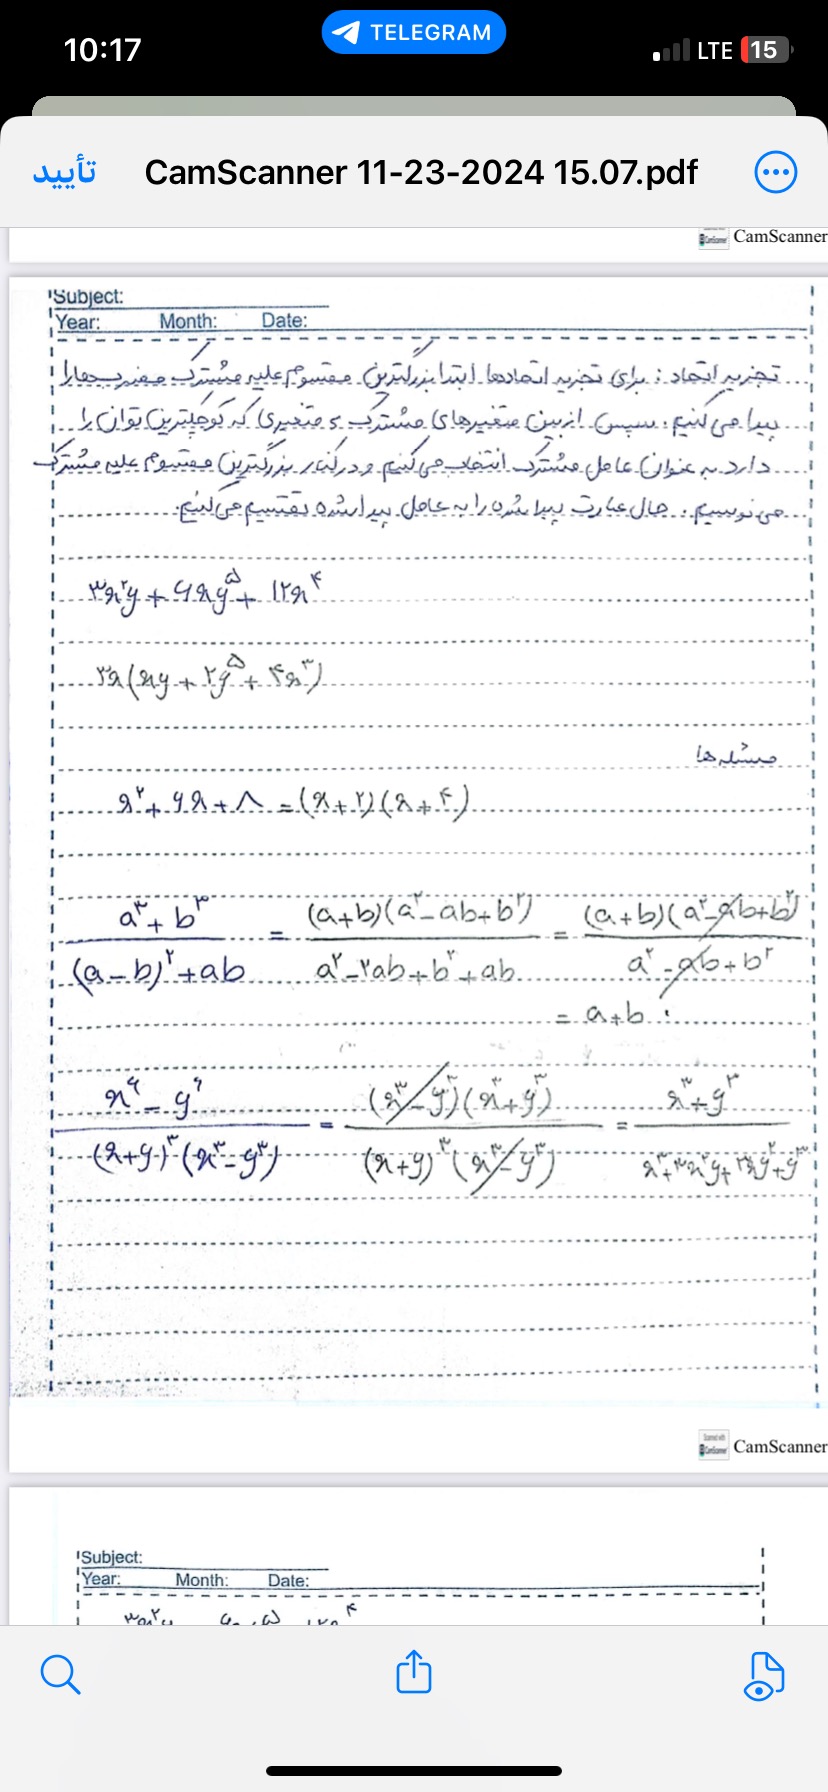 10:17
TELEGRAM
LTE 15
تأیید CamScanner 11-23-2024 15.07.pdf
CamScanner
Subject:
Year: Month: Date:
تجزیه اتحاد: برای تجزیه اتحادها ابتدا بزرگترین مقسوم علیه مشترک ضرب‌ها را
پیدا می کنیم. سپس از بین متغیرهای مشترک متغیری که کوچکترین توان را
دارد به عنوان عامل مشترک انتخاب می‌کنیم و در کنار بزرگترین مقسوم علیه مشترک
می نویسیم. حال عبارت پیدا شده را به عامل پیدا شده تقسیم می کنیم.
۳x²y + ۶xy⁵ + ۱۲x⁴
۳x(xy + ۲y⁵ + ۴x³)
مسئله‌ها
x² + ۶x + ۸ = (x + ۲)(x + ۴)
a³ + b³ / (a − b)² + ab = (a+b)(a² − ab + b²) / a² − ۲ab + b² + ab = (a+b)(a² − ab + b²) / a² − ab + b²
= a + b
x⁶ − y⁶ / (x+y)³(x³ − y³) = (x³ − y³)(x³ + y³) / (x+y)³(x³ − y³) = x³ + y³ / x³ + ۳x²y + ۳xy² + y³
CamScanner
Subject:
Year: Month: Date: